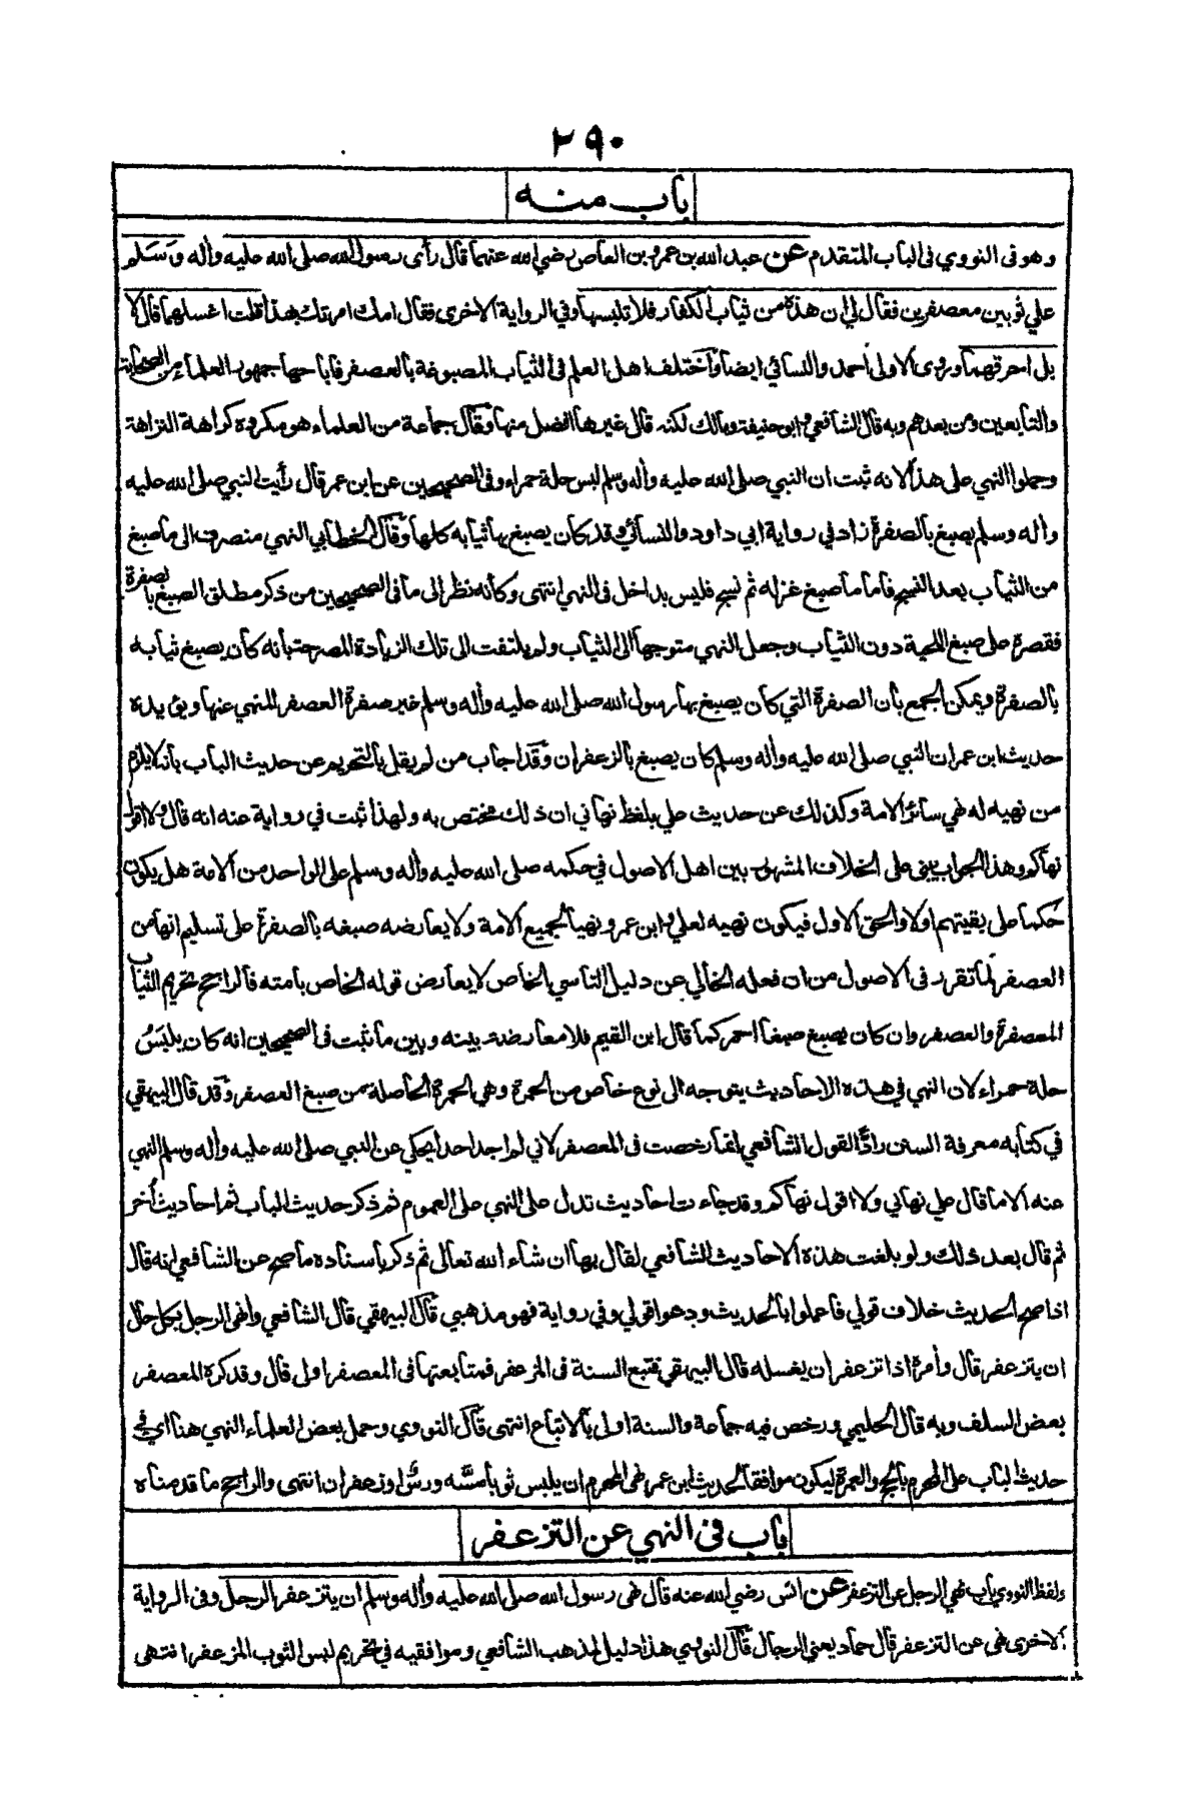 ٢٩٠
باب منه
وهو فى النووي فى الباب المتقدم عن عبد الله بن عمرو بن العاص رضي الله عنهما قال رأى رسول الله صلى الله عليه وأله وسلم
علي ثوبين معصفرين فقال لي ان هذه من ثياب الكفار فلا تلبسها وفي الرواية الاخرى فقال امك امرتك بهذا قلت اغسلهما قال لا
بل احرقهما وروى الاولى أحمد والنسائي ايضا واختلف اهل العلم فى الثياب المصبوغة بالعصفر فاباحها جمهور العلماء من الصحابة
والتابعين ومن بعدهم وبه قال الشافعي وابو حنيفة ومالك لكنه قال غيرها افضل منها وقال جماعة من العلماء هو مكروه كراهة التنزاهة
وحملوا النهي على هذا لانه ثبت ان النبي صلى الله عليه وأله وسلم لبس حلة حمراء وفى الصحيحين عن ابن عمر قال رأيت النبي صلى الله عليه
وأله وسلم يصبغ بالصفرة زاد في رواية ابي داود والنسائي وقد كان يصبغ بها ثيابه كلها وقال الخطابي النهي منصرف الى ما صبغ
من الثياب بعد النسج فأما ما صبغ غزله ثم نسج فليس بداخل فى النهي انتهى وكأنه نظر الى ما فى الصحيحين من ذكر مطلق الصبغ بالصفرة
فقصره على صبغ اللحية دون الثياب وجعل النهي متوجها الى الثياب ولم يلتفت الى تلك الزيادة المصرحة بأنه كان يصبغ ثيابه
بالصفرة ويمكن الجمع بأن الصفرة التي كان يصبغ بها رسول الله صلى الله عليه وأله وسلم غير صفرة العصفر المنهي عنها ويؤيده
حديث ابن عمر ان النبي صلى الله عليه وأله وسلم كان يصبغ بالزعفران وقد اجاب من لم يقل بالتحريم عن حديث الباب بأنه لا يلزم
من نهيه له نهي سائر الامة وكذلك عن حديث علي بلفظ نهاني ان ذلك مختص به ولهذا ثبت في رواية عنه انه قال ولا اقول
نهاكم وهذا الجواب يبنى على الخلاف المشهور بين اهل الاصول في حكمه صلى الله عليه وأله وسلم على الواحد من الامة هل يكون
حكما على بقيتهم اولا والحق الاول فيكون نهيه لعلي وابن عمرو نهيا لجميع الامة ولا يعارضه صبغه بالصفرة على تسليم انها من
العصفر لما تقرر فى الاصول من ان فعله الخالي عن دليل التاسي الخاص لا يعارض قوله الخاص بامته فالراجح تحريم الثياب
المعصفرة والعصفر وان كان يصبغ صبغا احمر كما قال ابن القيم فلا معارضة بينه وبين ما ثبت فى الصحيحين انه كان يلبس
حلة حمراء لان النهي في هذه الاحاديث يتوجه الى نوع خاص من الحمرة وهي الحمرة الحاصلة من صبغ العصفر وقد قال البيهقي
في كتابه معرفة السنن رادا لقول الشافعي انما رخصت فى المعصفر لاني لم اجد احدا يحكي عن النبي صلى الله عليه وأله وسلم النهي
عنه الا ما قال علي نهاني ولا اقول نهاكم وقد جاءت احاديث تدل على النهي على العموم ثم ذكر حديث الباب ثم احاديث أخر
ثم قال بعد ذلك ولو بلغت هذه الاحاديث الشافعي لقال بها ان شاء الله تعالى ثم ذكر باسناده ما صح عن الشافعي انه قال
اذا صح الحديث خلاف قولي فاعملوا بالحديث ودعوا قولي وفي رواية فهو مذهبي قال البيهقي قال الشافعي وانهى الرجل بكل حال
ان يتزعفر قال وأمره اذا تزعفر ان يغسله قال البيهقي فتبع السنة فى المزعفر فمتابعتها فى المعصفر اولى قال وقد كره المعصفر
بعض السلف وبه قال الحليمي ورخص فيه جماعة والسنة اولى بالاتباع انتهى قال النووي وحمل بعض العلماء النهي هنا اي في
حديث الباب على المحرم بالحج والعمرة ليكون موافقا لحديث ابن عمر نهى المحرم ان يلبس ثوبا مسه ورس او زعفران انتهى والراجح ما قدمناه
باب فى النهي عن التزعفر
ولفظ النووي باب نهي الرجل عن التزعفر عن انس رضي الله عنه قال نهى رسول الله صلى الله عليه وأله وسلم ان يتزعفر الرجل وفى الرواية
الاخرى نهى عن التزعفر قال حماد يعني الرجال قال النووي هذا دليل لمذهب الشافعي وموافقيه في تحريم لبس الثوب المزعفر انتهى